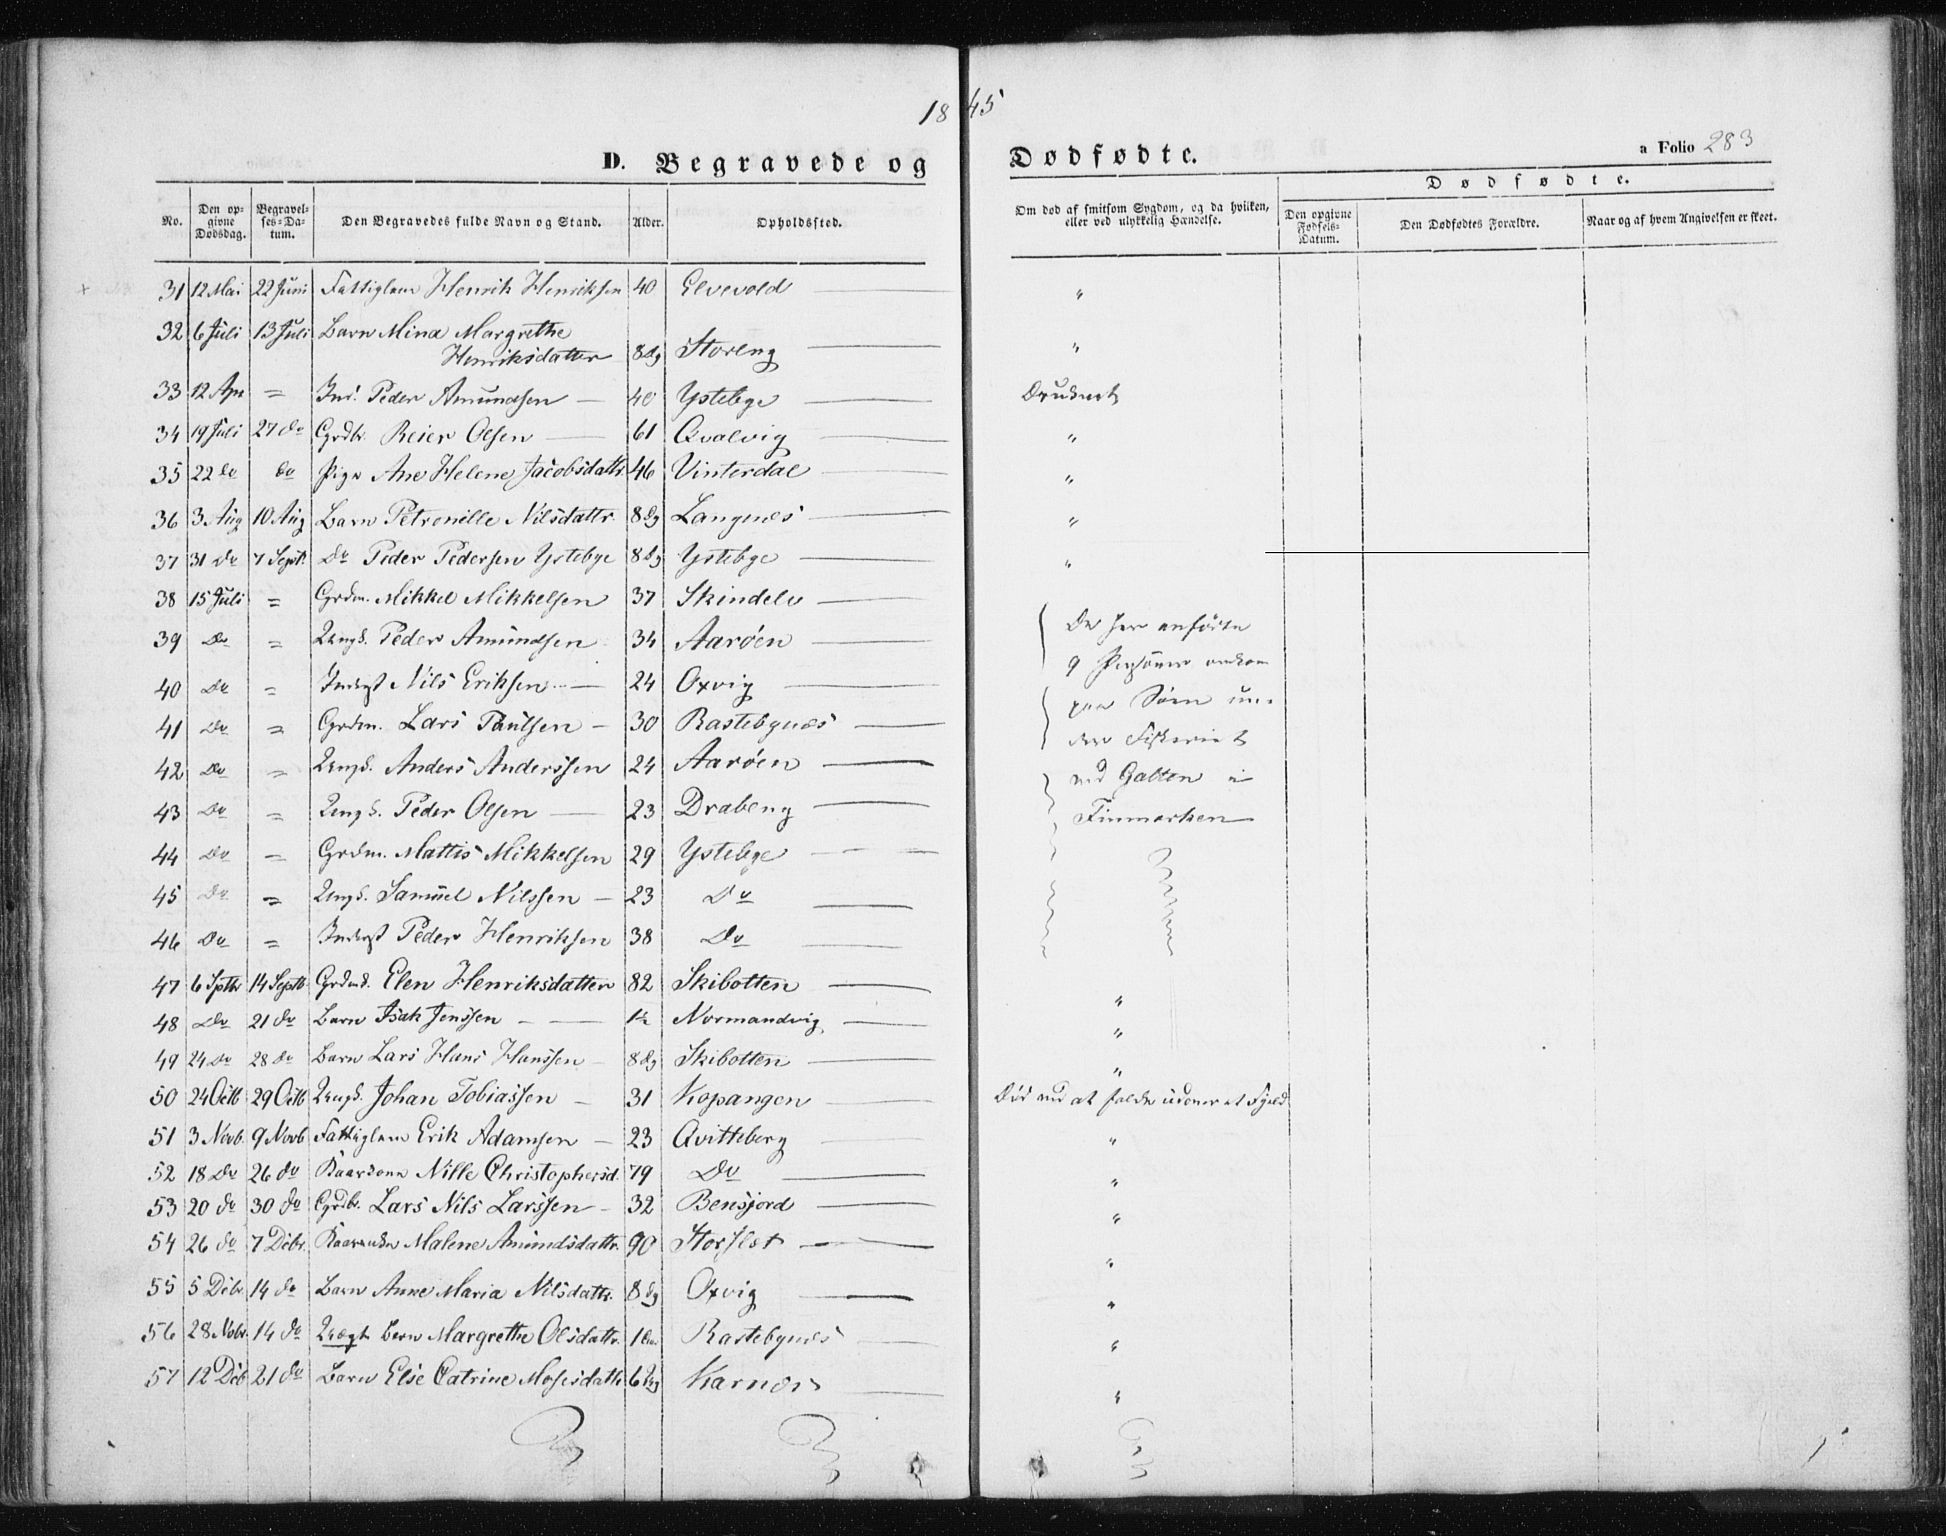 1845
D. Begravede og Dødfødte.
a Folio 283
No. Den opgivne Dødsdag. Begravelses-Datum. Den Begravedes fulde Navn og Stand. Alder. Opholdssted. Om død af smitsom Sygdom, og da hvilken, eller ved ulykkelig Hændelse. Dødfødte. Den opgivne Fødsels-Datum. Den Dødfødtes Forældre. Naar og af hvem Angivelsen er skeet.
31 12 Mai 22 Juni Fattiglem Henrik Henriksen 40 Elvevold "
32 6 Juli 13 Juli Barn Mina Margrethe
Henriksdatter 8 Dg Storeng "
33 12 Apr = Ind. Peder Amundsen 40 Ystebye Druknet
34 19 Juli 27 do Grdbr. Reier Olsen 61 Qvalvig "
35 22 do do Pige Ane Helene Jacobsdattr 46 Vinterdal "
36 3 Aug 10 Aug Barn Petronille Nilsdattr. 8 Dg Langnæs "
37 31 Do 7 Septr. Do Peder Pedersen Ystebye 8 Dg Ystebye "
38 15 Juli = Grdm. Mikkel Mikkelsen 37 Skindelv
39 Do = Ungk. Peder Amundsen 34 Aarøen De her anførte
40 Do = Inderst Nils Eriksen 24 Oxvig 9 Personer omkom
41 Do = Grdm. Lars Paulsen 30 Rastebynæs paa Søen un-
42 Do = Ungk. Anders Anderssen 24 Aarøen der Fiskeriet
43 Do = Ungk. Peder Olsen 23 Drabeng ved Galten i
44 Do = Grdm. Mattis Mikkelsen 29 Ystebye Finmarken
45 Do = Ungk. Samuel Nilssen 23 Do
46 Do = Inderst Peder Henriksen 38 Do
47 6 Sptbr 14 Septb Elen Henriksdatter 82 Skibotten "
48 Do 21 do Barn Isak Jenssen 1½ Normandvig "
49 24 Do 28 do Barn Lars Hans Hanssen 8 Dg Skibotten "
50 24 Octb 29 Octb Ungk. Johan Tobiassen 31 Kopangen Død ved at falde udover et Fjeld
51 3 Novb. 9 Novb Fattiglem Erik Adamsen 23 Qvitteberg "
52 18 Do 26 do Kaarkone Nille Christophersd. 79 Do "
53 20 do 30 do Grdbr. Lars Nils Larssen 32 Bensjord "
54 26 do 7 Decbr. Malene Amundsdattr. 90 Storslet "
55 5 Decbr 14 do Barn Anne Maria Nilsdattr. 8 Dg Oxvig "
56 28 Nobr. 14 do Uægt. Barn Margrethe Olsdattr. 1 Rastebynæs "
57 12 Decb 21 do Barn Else Catrine Mosesdattr 6 Dg Karnæs "